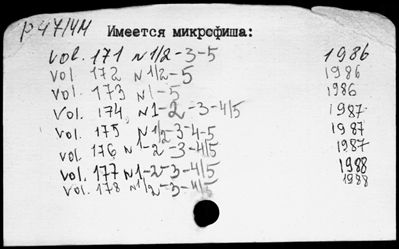 р47/4М Имеется микрофиша:
vol. 171 N 1/2-3-5 1986
vol 172 N 1/2-5 1986
vol. 173 N 1-5 1986
vol. 174, N 1-2-3-4/5 1987
vol. 175 N 1/2-3-4-5 1987
vol. 176 N 1-2-3-4/5 1987
vol. 177 N 1-2-3-4/5 1988
vol. 178 N 1/2-3-4/5 1988